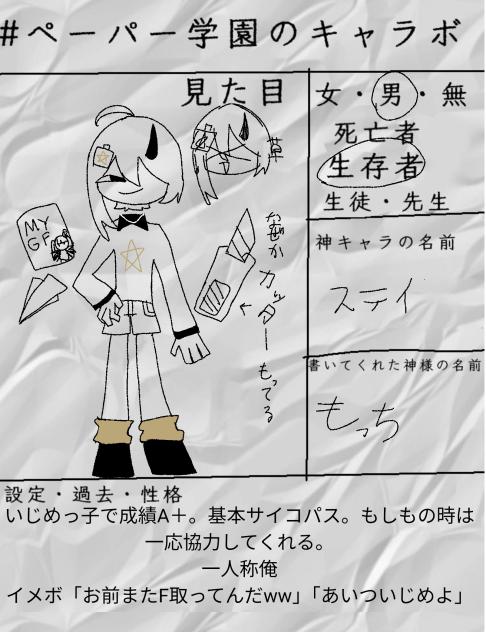 #ペーパー学園のキャラボ
見た目
女・男・無
死亡者
生存者
生徒・先生
神キャラの名前
ステイ
書いてくれた神様の名前
もっち
草
MY
GF
なぜか
カッター
もってる
設定・過去・性格
いじめっ子で成績A＋。基本サイコパス。もしもの時は
一応協力してくれる。
一人称俺
イメボ「お前またF取ってんだww」「あいついじめよ」